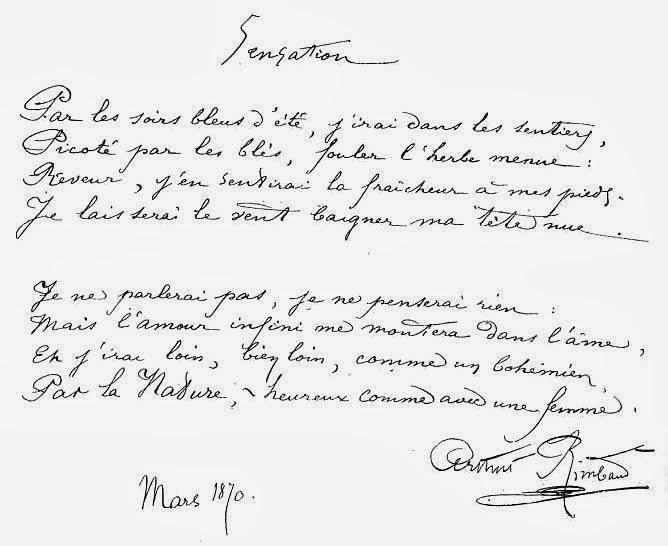 Sensation
Par les soirs bleus d'été, j'irai dans les sentiers,
Picoté par les blés, fouler l'herbe menue :
Rêveur, j'en sentirai la fraîcheur à mes pieds.
Je laisserai le vent baigner ma tête nue.
Je ne parlerai pas, je ne penserai rien :
Mais l'amour infini me montera dans l'âme,
Et j'irai loin, bien loin, comme un bohémien,
Par la Nature, - heureux comme avec une femme.
Arthur Rimbaud
Mars 1870.